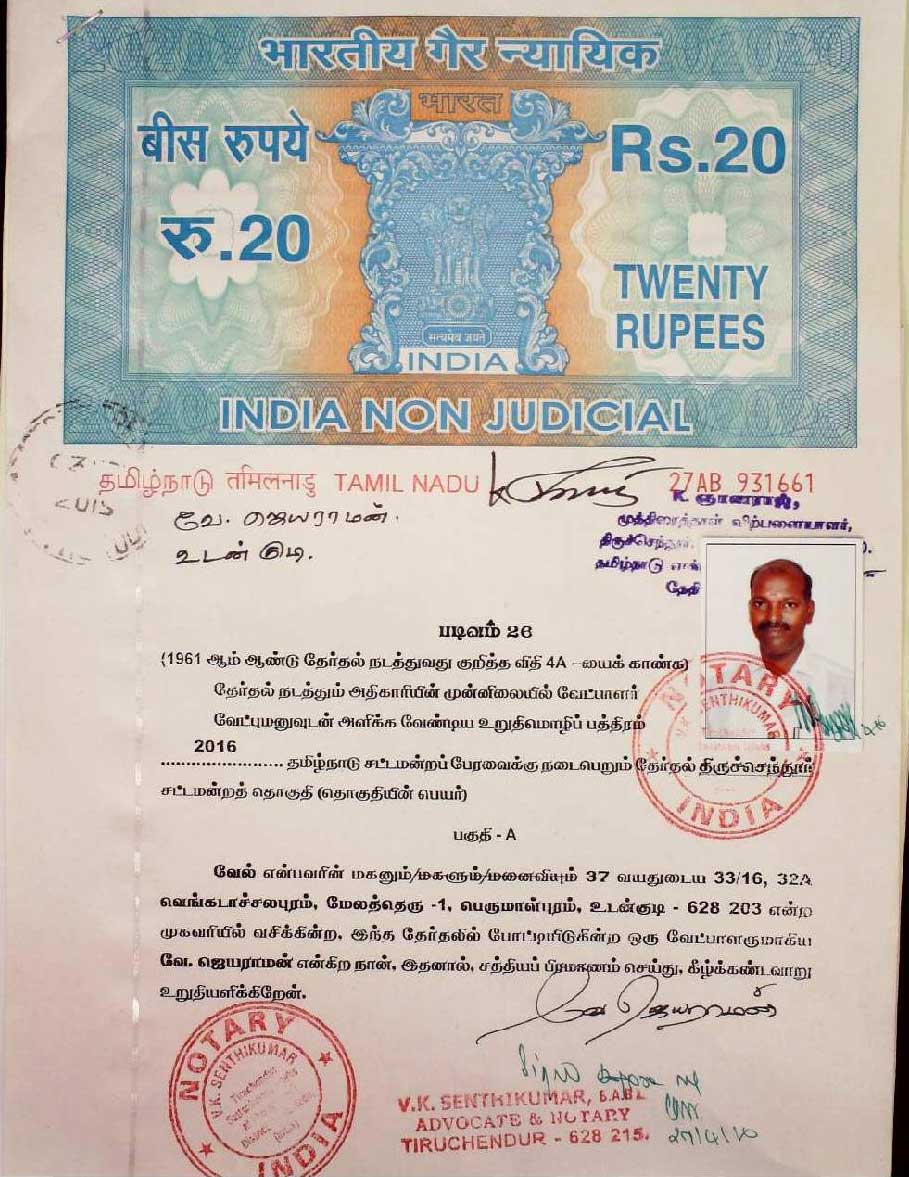 भारतीय गैर न्यायिक
भारत
बीस रुपये
Rs.20
रु.20
TWENTY
RUPEES
सत्यमेव जयते
INDIA
INDIA NON JUDICIAL
தமிழ்நாடு तमिलनाडु TAMIL NADU
27AB 931661
வே. ஜெயராமன்.
K. ஞானராஜ்,
முத்திரைத்தாள் விற்பனையாளர்,
உடன்குடி.
திருச்செந்தூர்.
தமிழ்நாடு
தேதி
படிவம் 26
(1961 ஆம் ஆண்டு தேர்தல் நடத்துவது குறித்த விதி 4A –யைக் காண்க)
தேர்தல் நடத்தும் அதிகாரியின் முன்னிலையில் வேட்பாளர்
வேட்புமனுவுடன் அளிக்க வேண்டிய உறுதிமொழிப் பத்திரம்
2016
........................ தமிழ்நாடு சட்டமன்றப் பேரவைக்கு நடைபெறும் தேர்தல் திருச்செந்தூர்
சட்டமன்றத் தொகுதி (தொகுதியின் பெயர்)
பகுதி - A
வேல் என்பவரின் மகனும்/மகளும்/மனைவியும் 37 வயதுடைய 33/16, 32A
வெங்கடாச்சலபுரம், மேலத்தெரு -1, பெருமாள்புரம், உடன்குடி - 628 203 என்ற
முகவரியில் வசிக்கின்ற, இந்த தேர்தலில் போட்டியிடுகின்ற ஒரு வேட்பாளருமாகிய
வே. ஜெயராமன் என்கிற நான், இதனால், சத்தியப் பிரமாணம் செய்து, கீழ்க்கண்டவாறு
உறுதியளிக்கிறேன்.
வே ஜெயராமன்
NOTARY
V.K. SENTHIKUMAR
INDIA
NOTARY
V.K. SENTHIKUMAR
Tiruchendur
INDIA
V.K. SENTHIKUMAR, B.A.B.L
ADVOCATE & NOTARY
TIRUCHENDUR - 628 215.